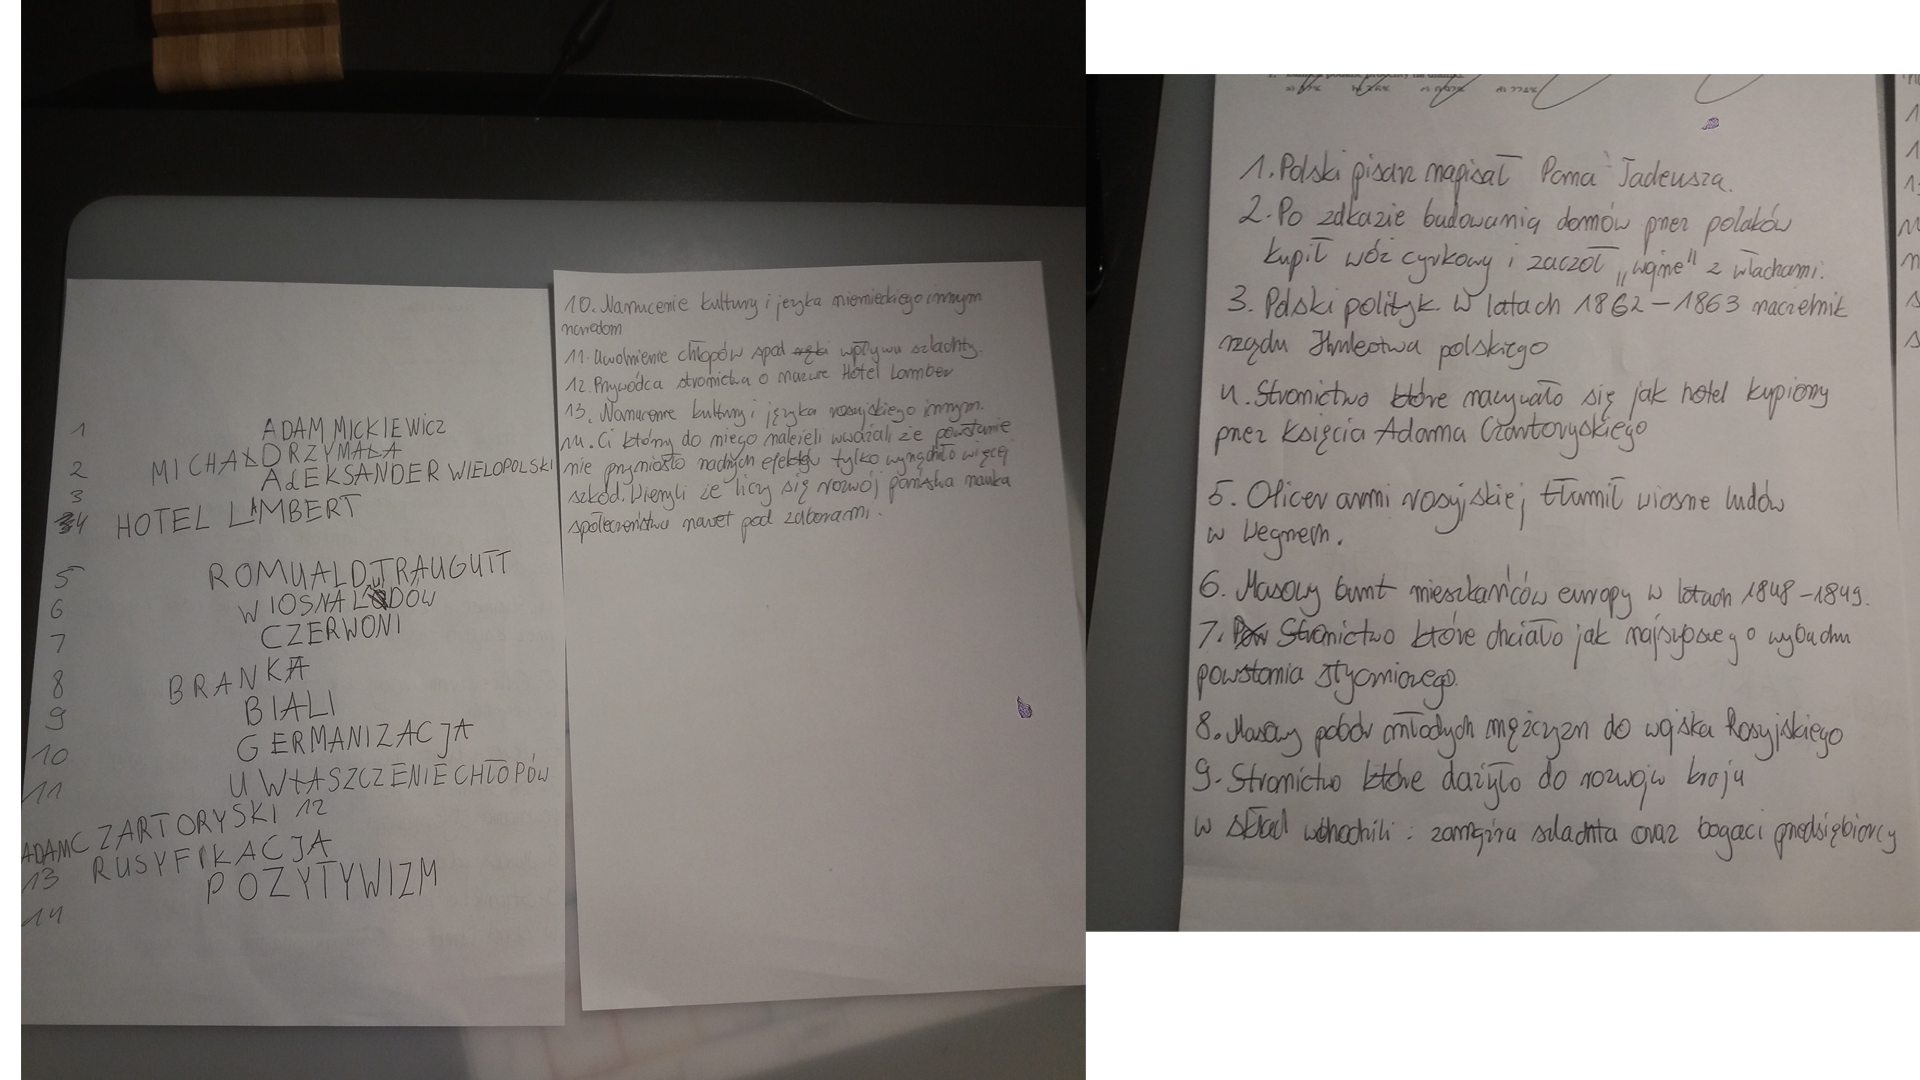 1 ADAM MICKIEWicz
2 MICHAŁ DRZYMAŁA
3 ALEKSANDER WIELOPOLSKI
4 HOTEL LAMBERT
5 ROMUALD TRAUGUTT
6 WIOSNA LUDÓW
7 CZERWONI
8 BRANKA
9 BIALI
10 GERMANIZACJA
11 UWŁASZCZENIE CHŁOPÓW
ADAM CZARTORYSKI 12
13 RUSYFIKACJA
14 POZYTYWIZM
10. Narzucenie kultury i jezyka niemieckiego innym
narodom
11. Uwolnienie chłopów spod wpływu szlachty.
12. Przywódca stronictwa o nazwie Hotel Lamber
13. Narzucenie kultury i języka rosyjskiego innym.
14. Ci którzy do niego należeli uważali że powstanie
nie przyniosło żadnych efektów tylko wyrządziło więcej
szkód. Wierzyli że liczy się rozwój nauka
społeczeństwa nawet pod zaborami.
1. Polski pisarz napisał Pana Tadeusza.
2. Po zakazie budowania domów przez polaków
kupił wóz cyrkowy i zaczoł „wojne" z władzami.
3. Polski polityk. W latach 1862-1863 naczelnik
rządu Królestwa polskiego
4. Stronictwo które nazywało się jak hotel kupiony
przez Księcia Adama Czartoryskiego
5. Oficer armi rosyjskiej tłumił wiosne ludów
w Wegrzech.
6. Masowy bunt mieszkańców europy w latach 1848-1849.
7. Stronictwo które chciało jak najszypszego wybuchu
powstania styczniowego.
8. Masowy pobór młodych mężczyzn do wojska Rosyjskiego
9. Stronictwo które dażyło do rozwoju kraju
w skład wchodzili: zamężna szlachta oraz bogaci przedsiębiorcy